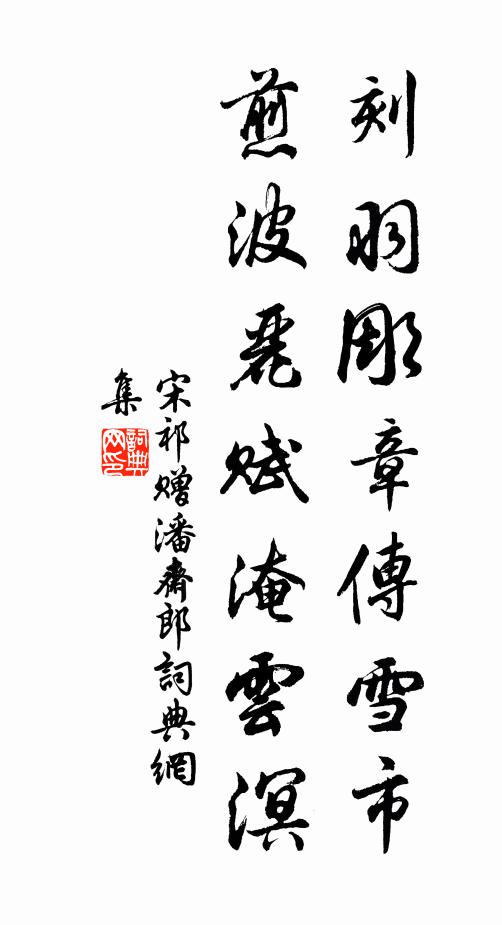 刻羽彫章傳雪市
煎波麗賦淹雲溟
宋祁贈潘齋郎詞典網
集
詞典
网印